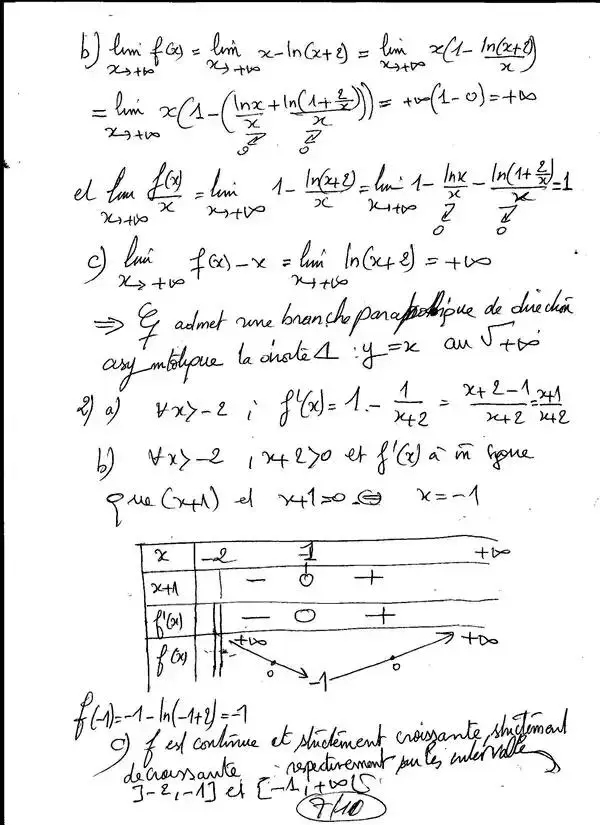 b) lim f(x) = lim x - ln(x+2) = lim x(1 - ln(x+2)/x)
x→+∞ x→+∞ x→+∞
= lim x(1 - (lnx/x + ln(1+2/x)/x)) = +∞(1-0) = +∞
x→+∞ 0 0
et lim f(x)/x = lim 1 - ln(x+2)/x = lim 1 - lnx/x - ln(1+2/x)/x = 1
x→+∞ x→+∞ x→+∞ 0 0
c) lim f(x) - x = lim ln(x+2) = +∞
x→+∞ x→+∞
⇒ Cf admet une branche parabolique de direction
asymtotique la droite Δ : y = x au V +∞
2) a) ∀x>-2 ; f'(x) = 1 - 1/(x+2) = (x+2-1)/(x+2) = (x+1)/(x+2)
b) ∀x>-2 , x+2>0 et f'(x) à m̄ signe
que (x+1) et x+1=0 ⇔ x=-1
x -2 -1 +∞
x+1 - 0 +
f'(x) - 0 +
f(x) +∞ 0 -1 0 +∞
f(-1) = -1 - ln(-1+2) = -1
c) f est continue et strictement croissante, strictement
decroissante respectivement sur les intervalles
]-2,-1] et [-1,+∞[
7/10